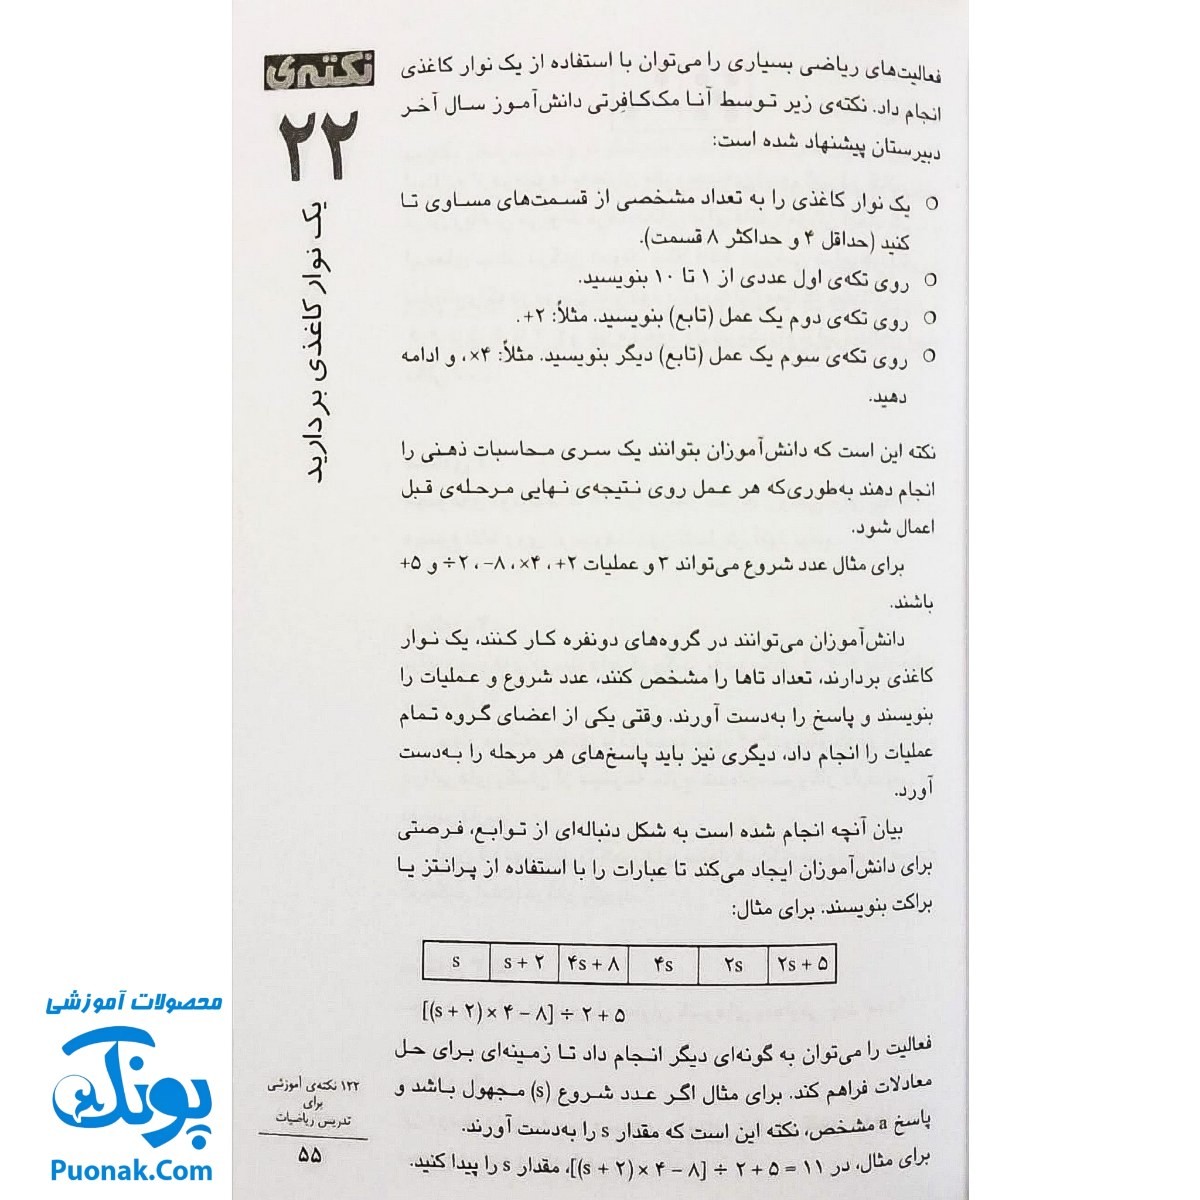 نکته‌ی
۲۲
یک نوار کاغذی بردارید
فعالیت‌های ریاضی بسیاری را می‌توان با استفاده از یک نوار کاغذی
انجام داد. نکته‌ی زیر توسط آنا مک‌کافِرتی دانش‌آموز سال آخر
دبیرستان پیشنهاد شده است:
○ یک نوار کاغذی را به تعداد مشخصی از قسمت‌های مساوی تا
کنید (حداقل ۴ و حداکثر ۸ قسمت).
○ روی تکه‌ی اول عددی از ۱ تا ۱۰ بنویسید.
○ روی تکه‌ی دوم یک عمل (تابع) بنویسید. مثلاً: ۲+.
○ روی تکه‌ی سوم یک عمل (تابع) دیگر بنویسید. مثلاً: ۴×، و ادامه
دهید.
نکته این است که دانش‌آموزان بتوانند یک سری محاسبات ذهنی را
انجام دهند به‌طوری‌که هر عمل روی نتیجه‌ی نهایی مرحله‌ی قبل
اعمال شود.
برای مثال عدد شروع می‌تواند ۳ و عملیات ۲+، ۴×، ۸−، ۲÷ و ۵+
باشند.
دانش‌آموزان می‌توانند در گروه‌های دونفره کار کنند، یک نوار
کاغذی بردارند، تعداد تاها را مشخص کنند، عدد شروع و عملیات را
بنویسند و پاسخ را به‌دست آورند. وقتی یکی از اعضای گروه تمام
عملیات را انجام داد، دیگری نیز باید پاسخ‌های هر مرحله را به‌دست
آورد.
بیان آنچه انجام شده است به شکل دنباله‌ای از توابع، فرصتی
برای دانش‌آموزان ایجاد می‌کند تا عبارات را با استفاده از پرانتز یا
براکت بنویسند. برای مثال:
s | s + ۲ | ۴s + ۸ | ۴s | ۲s | ۲s + ۵
[(s + ۲) × ۴ − ۸] ÷ ۲ + ۵
فعالیت را می‌توان به گونه‌ای دیگر انجام داد تا زمینه‌ای برای حل
معادلات فراهم کند. برای مثال اگر عدد شروع (s) مجهول باشد و
پاسخ a مشخص، نکته این است که مقدار s را به‌دست آورند.
برای مثال، در [(s + ۲) × ۴ − ۸] ÷ ۲ + ۵ = ۱۱، مقدار s را پیدا کنید.
۱۲۲ نکته‌ی آموزشی
برای
تدریس ریاضیات
۵۵
محصولات آموزشی
پونک
Puonak.Com